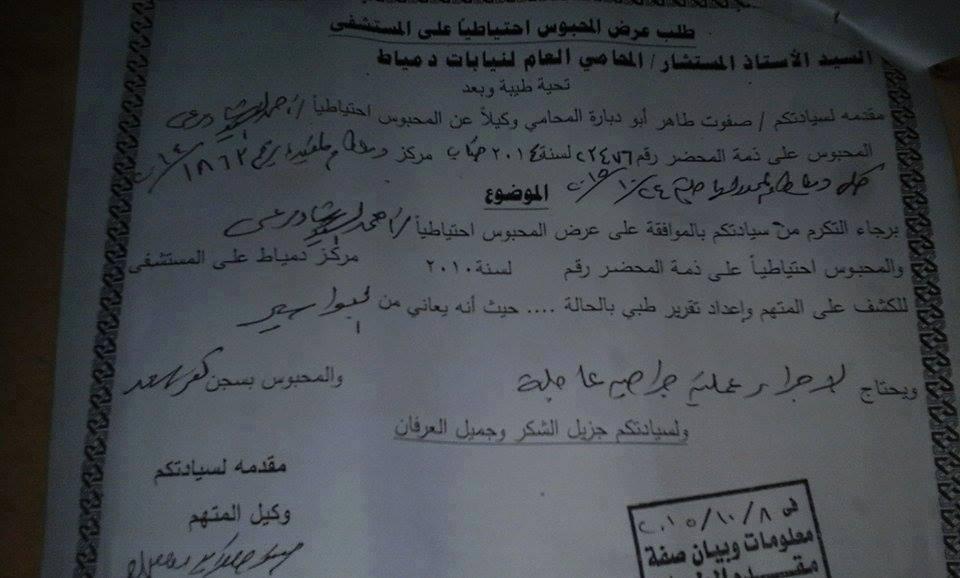 طلب عرض المحبوس احتياطياً على المستشفى
السيد الأستاذ المستشار / المحامي العام لنيابات دمياط
تحية طيبة وبعد
مقدمه لسيادتكم / صفوت طاهر أبو دبارة المحامي وكيلاً عن المحبوس احتياطياً / أحمد
المحبوس على ذمة المحضر رقم ٢٢٤٧٦ لسنة ٢٠١٤ جنايات مركز دمياط
الموضوع
برجاء التكرم من سيادتكم بالموافقة على عرض المحبوس احتياطياً / أحمد
والمحبوس احتياطياً على ذمة المحضر رقم لسنة ٢٠١٠ مركز دمياط على المستشفى
للكشف على المتهم وإعداد تقرير طبي بالحالة .... حيث أنه يعاني من بواسير
ويحتاج لاجراء عملية جراحية عاجلة والمحبوس بسجن كفر سعد
ولسيادتكم جزيل الشكر وجميل العرفان
مقدمه لسيادتكم
وكيل المتهم
فى ٨/١٠/٢٠١٥
معلومات وبيان صفة